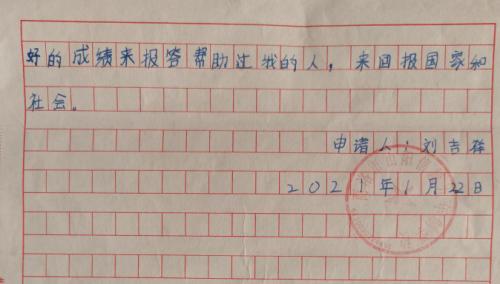 好的成绩来报答帮助过我的人，来回报国家和
社会。
申请人：刘吉祥
2021年1月22日